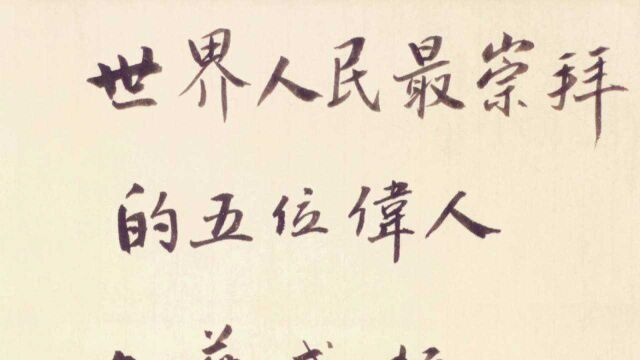 世界人民最崇拜
的五位偉人